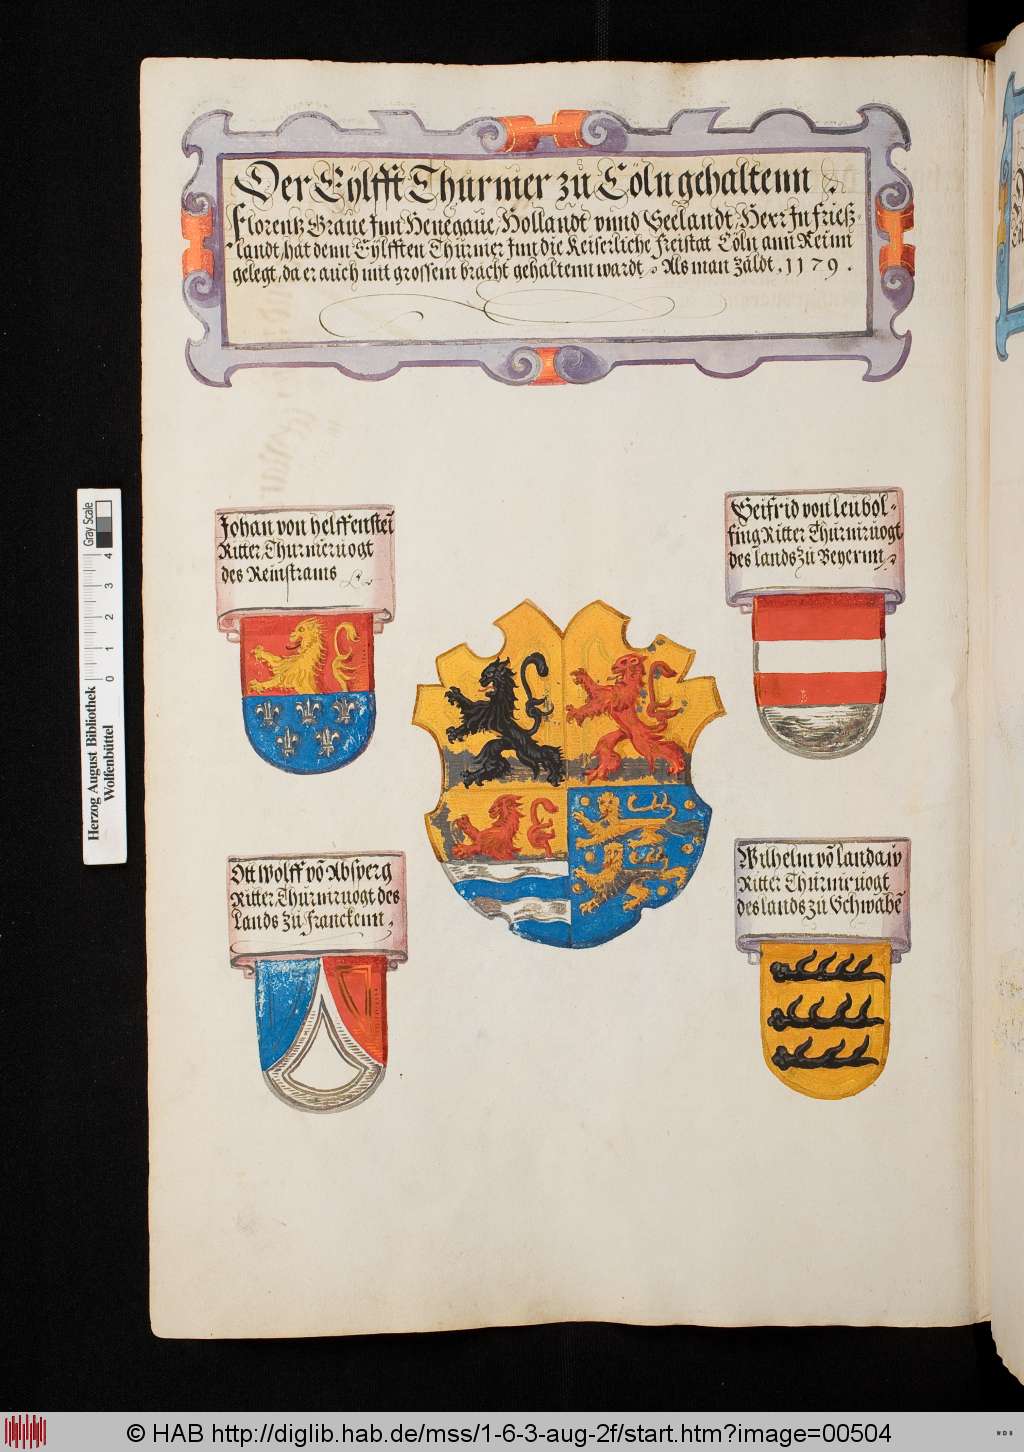 Der Eylfft Thurnier zu Cöln gehaltenn .
Florentz Graue Inn Henegaue, Hollandt vnnd Seelandt, Herr In frieß-
landt, hat denn Eylfften Thurnier Inn die Keiserliche freistat Cöln ann Reinn
gelegt, da er auch mit grossem bracht gehaltenn wardt. Als man zaldt . 1179 .
Johan von helffenstei
Ritter Thurnieruogt
des Reinstrams
Seifrid von leubol-
fing Ritter Thurnruogt
des lands zu Beyernn
Ott Wolff vō Absperg
Ritter Thurnruogt des
Lands zu Franckenn .
Wilhelm vō landaw
Ritter Thurnruogt
des lands zu Schwabē
Herzog August Bibliothek
Wolfenbüttel
0 1 2 3 4
Gray Scale
© HAB http://diglib.hab.de/mss/1-6-3-aug-2f/start.htm?image=00504